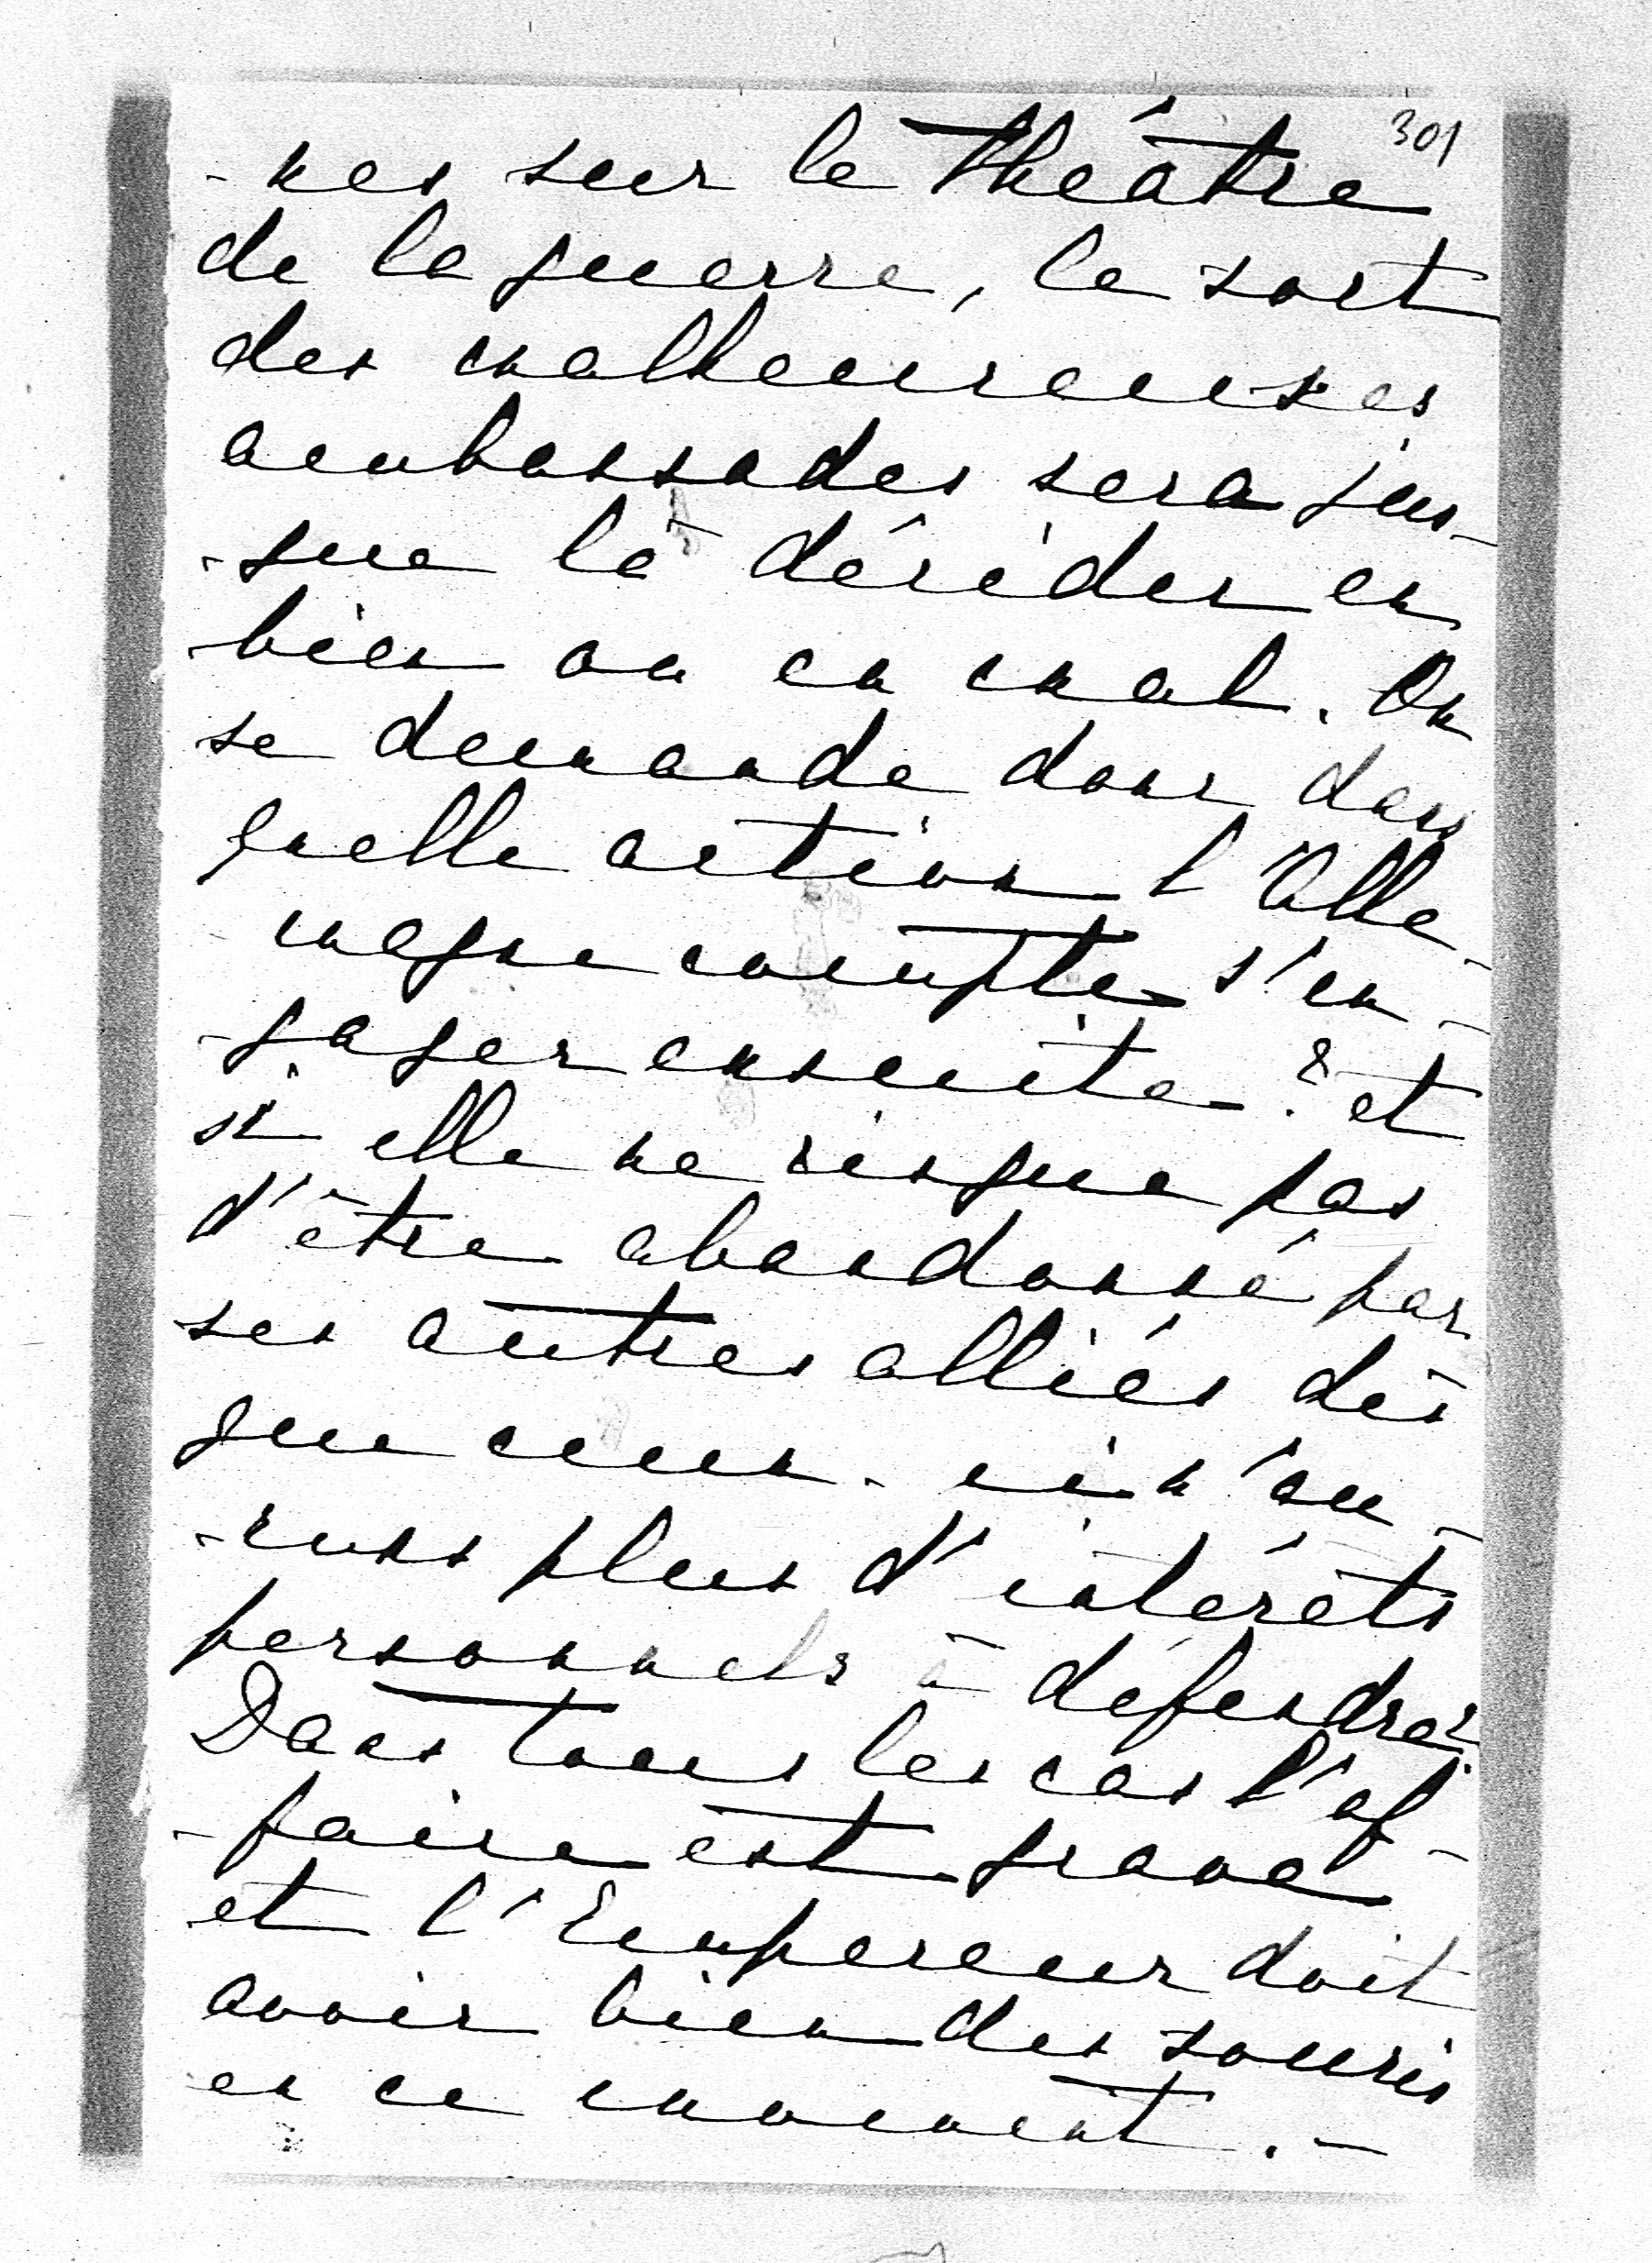 301
-nes sur le théâtre
de la guerre, le sort
des malheureuses
ambassades sera jus-
-que là décider en
bien ou en mal. On
se demande donc dans
quelle action l'Alle-
magne compte s'en-
-gager ensuite? et
si elle ne risque pas
d'être abandonné par
ses autres alliés dès
que ceux-ci n'au-
-ront plus d'intérêts
personnels à défendre?
Dans tous les cas l'af-
-faire est grave
et l'Empereur doit
avoir bien des soucis
en ce moment. -